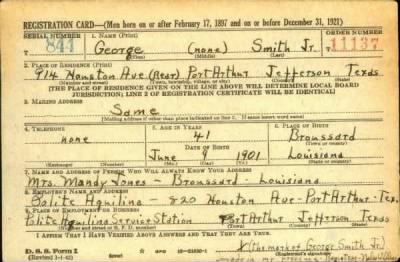 REGISTRATION CARD—(Men born on or after February 17, 1897 and on or before December 31, 1921)
SERIAL NUMBER 1. NAME (Print) ORDER NUMBER
844 George (none) Smith Jr. 11137
(First) (Middle) (Last)
2. PLACE OF RESIDENCE (Print)
914 Houston Ave (Rear) Port Arthur Jefferson Texas
(Number and street) (Town, township, village, or city) (County) (State)
[THE PLACE OF RESIDENCE GIVEN ON THE LINE ABOVE WILL DETERMINE LOCAL BOARD
JURISDICTION; LINE 2 OF REGISTRATION CERTIFICATE WILL BE IDENTICAL]
3. MAILING ADDRESS
Same
[Mailing address if other than place indicated on line 2. If same insert word same]
4. TELEPHONE 5. AGE IN YEARS 6. PLACE OF BIRTH
none 41 Broussard
DATE OF BIRTH (Town or county)
June 9 1901 Louisiana
(Exchange) (Number) (Mo.) (Day) (Yr.) (State or country)
7. NAME AND ADDRESS OF PERSON WHO WILL ALWAYS KNOW YOUR ADDRESS
Mrs. Mandy Jones - Broussard - Louisiana
8. EMPLOYER'S NAME AND ADDRESS
Polite Aguilina - 820 Houston Ave - Port Arthur - Tex.
9. PLACE OF EMPLOYMENT OR BUSINESS
Polite Aguilina Service Station Port Arthur Jefferson Texas
(Number and street or R. F. D. number) (Town) (County) (State)
I AFFIRM THAT I HAVE VERIFIED ABOVE ANSWERS AND THAT THEY ARE TRUE.
D. S. S. Form 1
(Revised 1-1-42) (over)
X (the mark of George Smith Jr.)
(Registrant's signature)